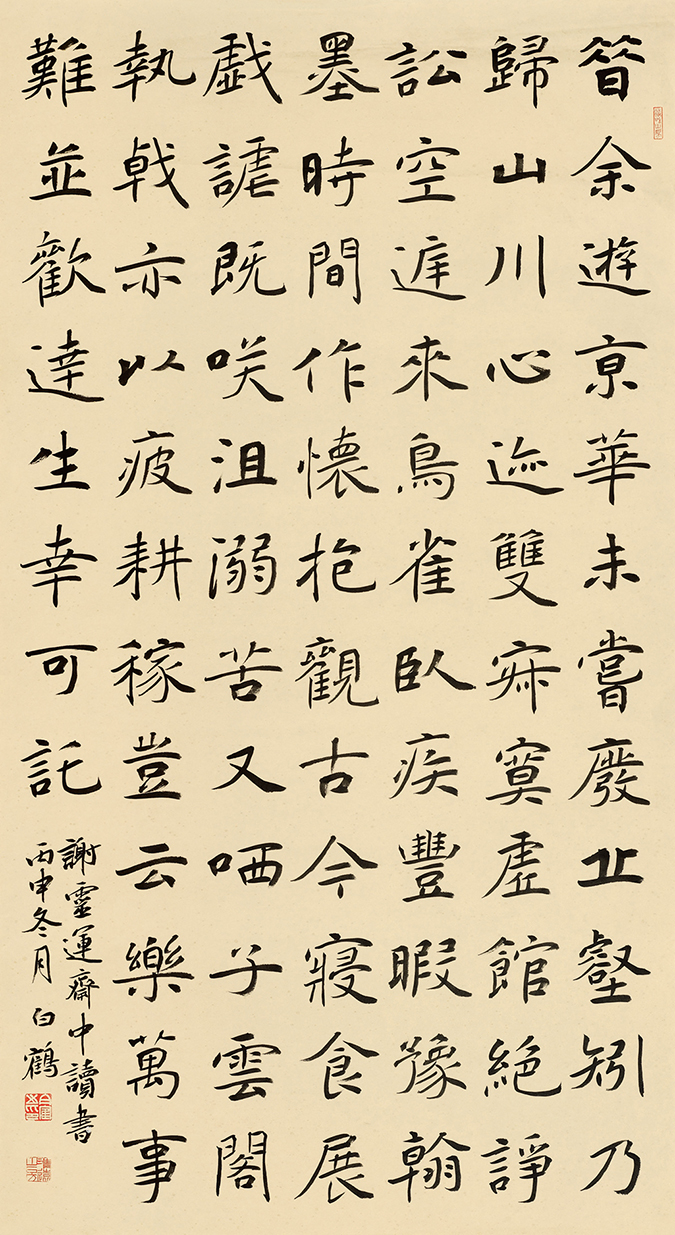 昔余遊京華未嘗廢丘壑矧乃
歸山川心迹雙寂寞虛館絶諍
訟空庭來鳥雀臥疾豐暇豫翰
墨時間作懐抱觀古今寢食展
戲謔既咲沮溺苦又哂子雲閣
執戟亦以疲耕稼豈云樂萬事
難並歡達生幸可託
謝靈運齋中讀書
丙申冬月白鶴